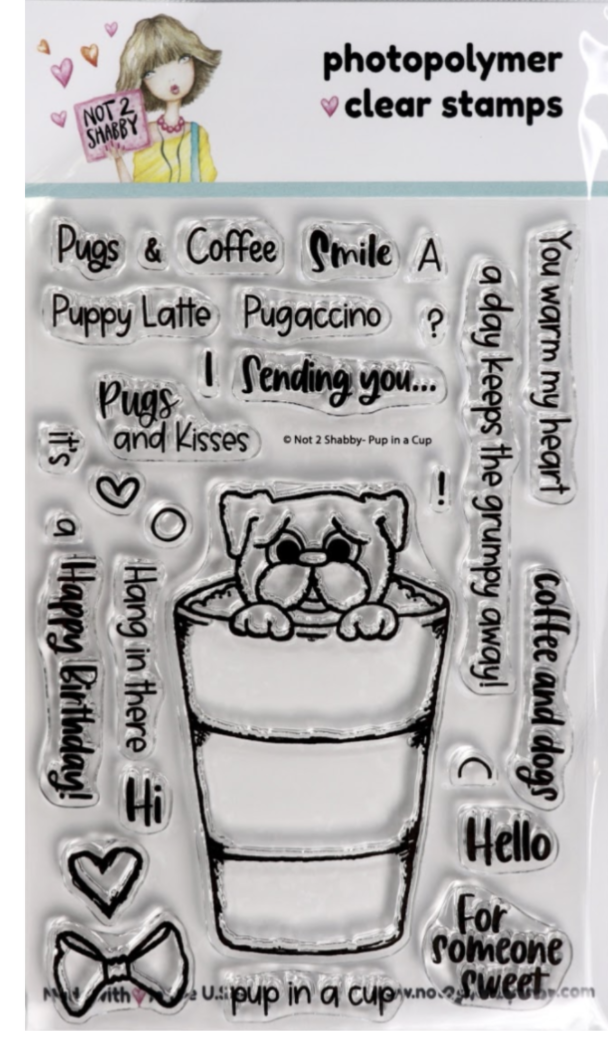 photopolymer
clear stamps
NOT 2
SHABBY
Pugs & Coffee Smile A
Puppy Latte Pugaccino ?
I Sending you...
Pugs
and Kisses
© Not 2 Shabby- Pup in a Cup
it's
a
!
You warm my heart
a day keeps the grumpy away!
Happy Birthday!
Hang in there
coffee and dogs
Hi
Hello
For
someone
sweet
pup in a cup